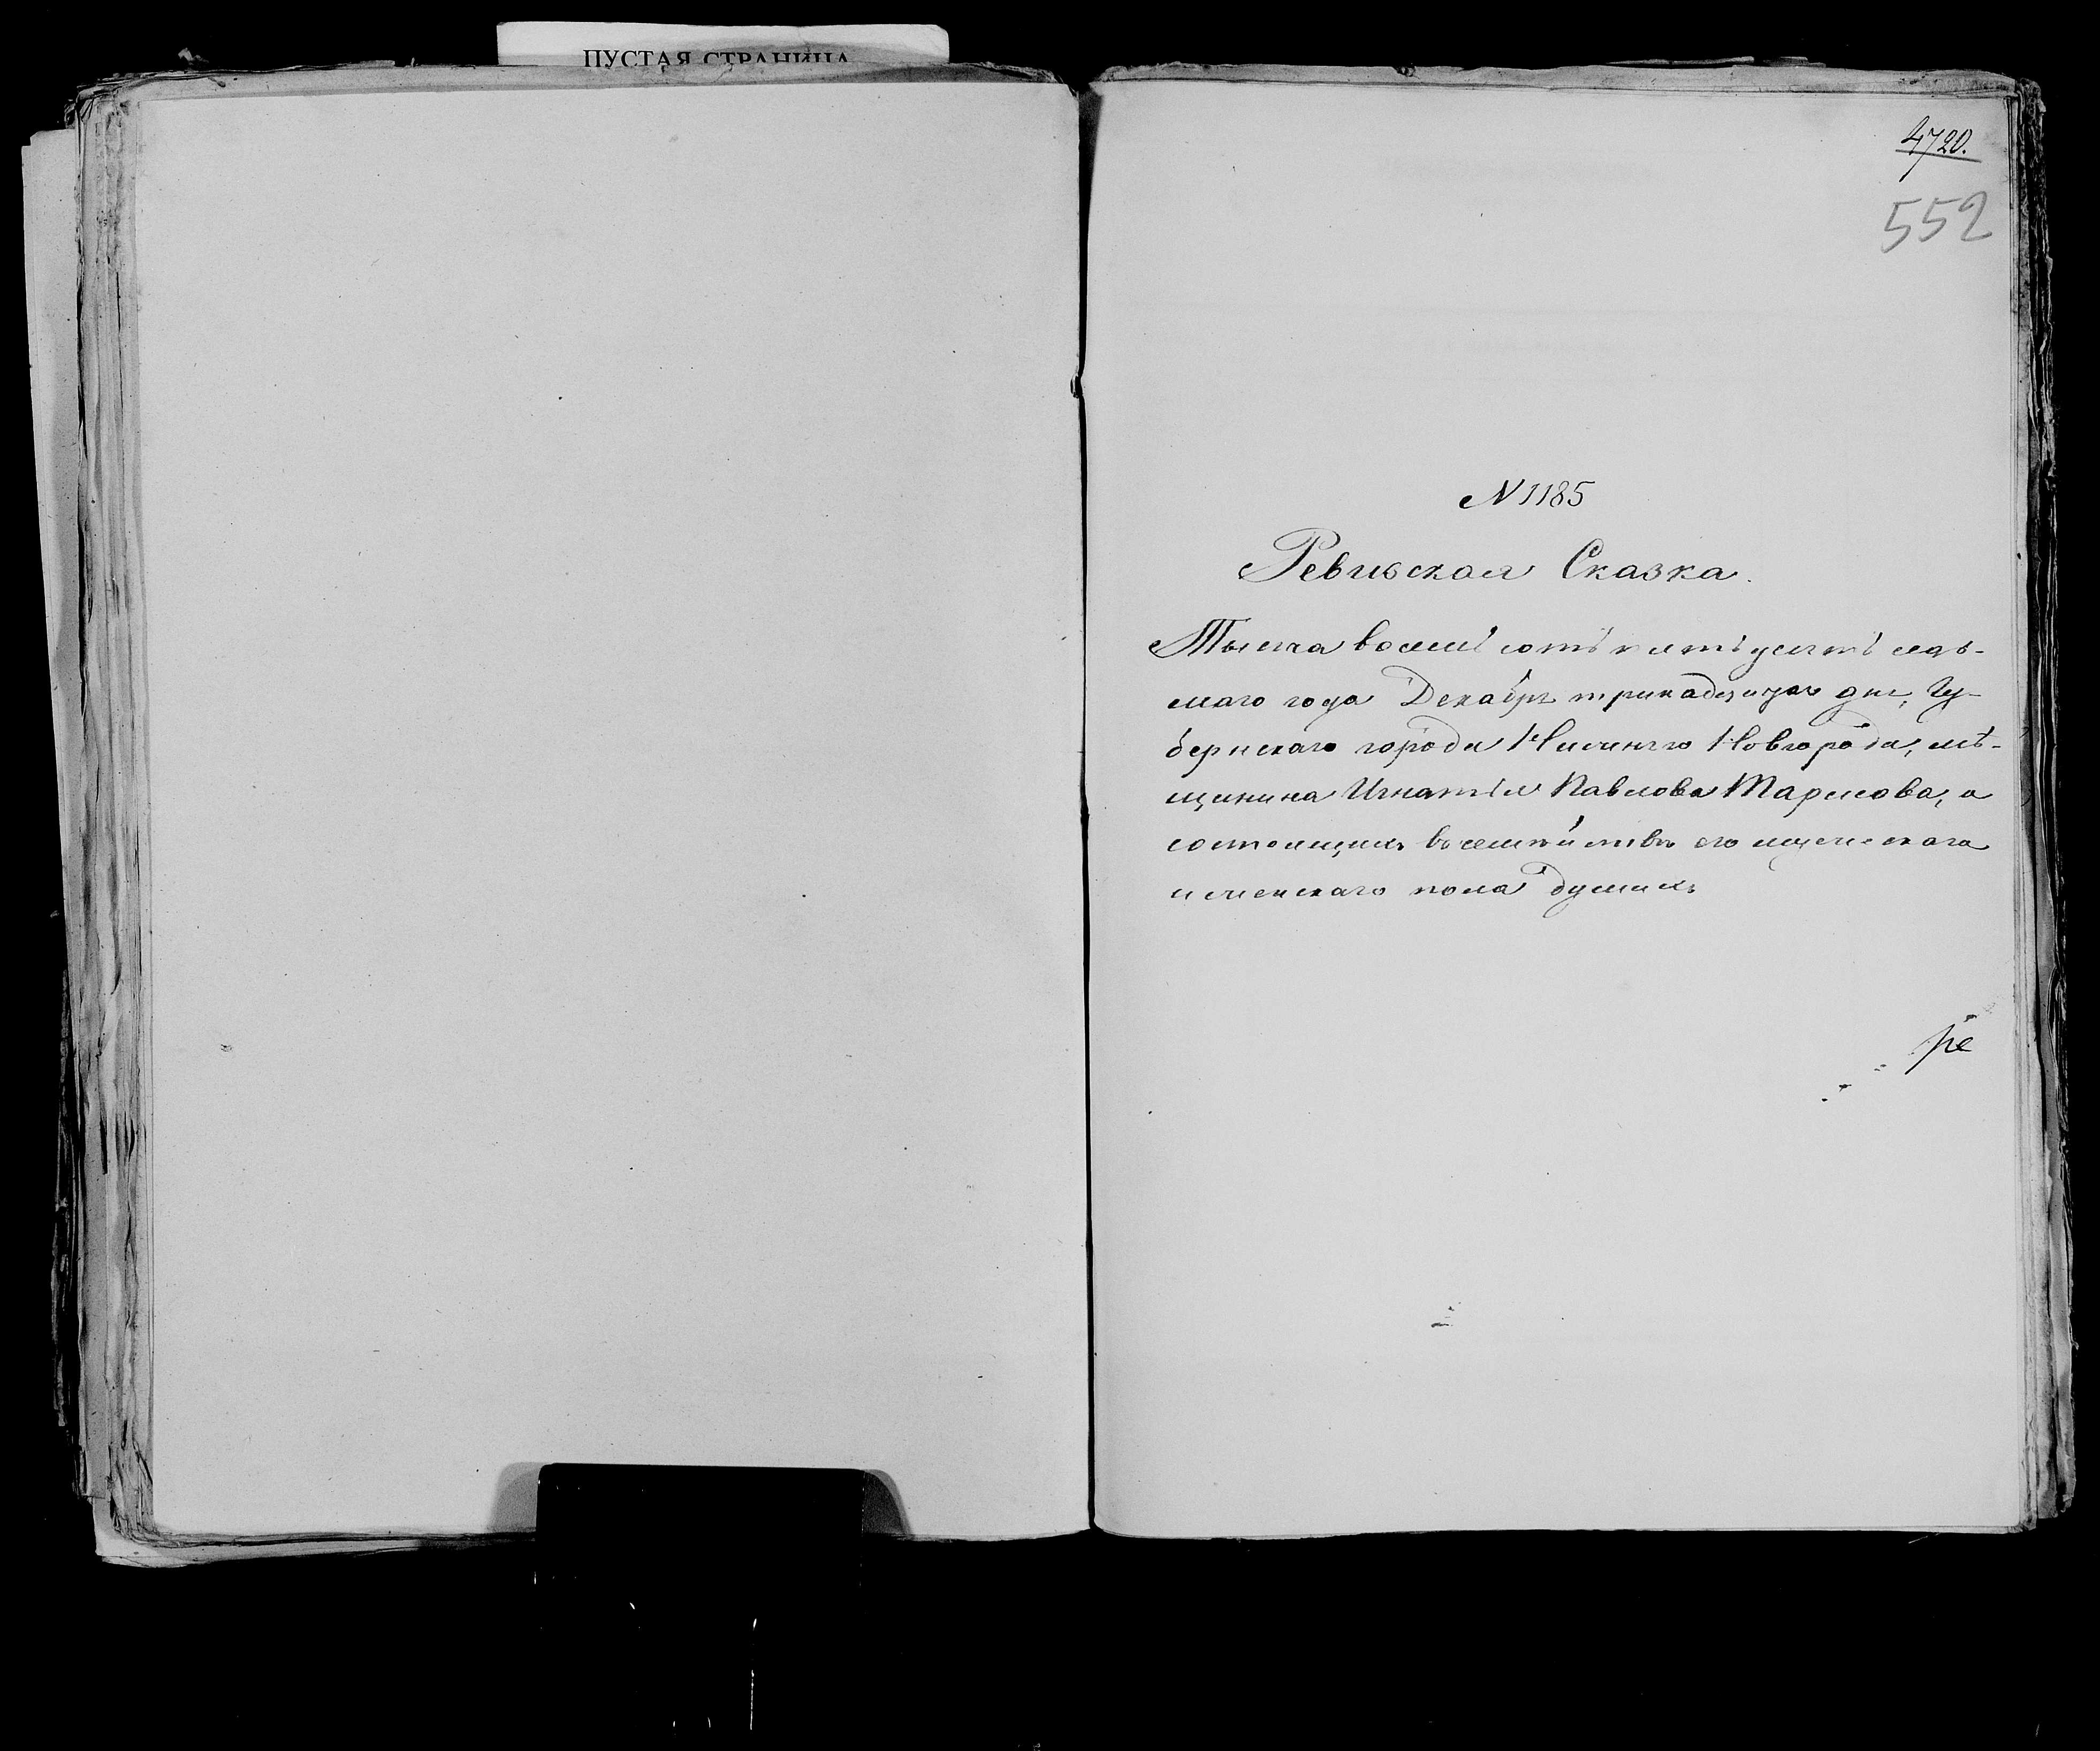 ПУСТАЯ СТРАНИЦА
4720.
552
N 1185
Ревизская Сказка.
Тысяча восемь сотъ пятьдесятъ седь-
маго года Декабря тринадцатаго дня, Гу-
бернскаго города Нижняго Новгорода, мѣ-
щанина Игнатія Павлова Тарасова, о
состоящихъ въ семействѣ его мужескаго
и женскаго пола душахъ
ре